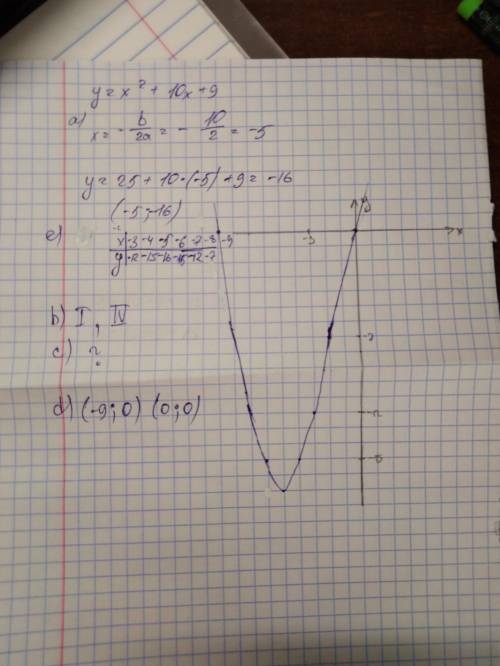 y = x² + 10x + 9
a) x = - b/2a = - 10/2 = -5
y = 25 + 10·(-5) + 9 = -16
(-5; -16)
e)
x -3 -4 -5 -6 -7 -8 -9
y -12 -15 -16 -15 -12 -7
b) I, IV
c) ?
d) (-9; 0) (0; 0)
y
x
-3